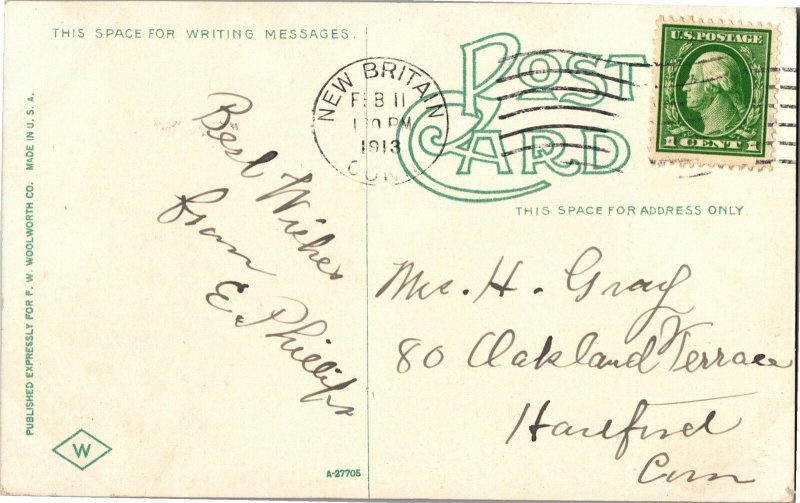 THIS SPACE FOR WRITING MESSAGES.
POST
CARD
NEW BRITAIN
FEB 11
1 30 PM
1913
CONN
U.S. POSTAGE
1 CENT 1
THIS SPACE FOR ADDRESS ONLY.
PUBLISHED EXPRESSLY FOR F. W. WOOLWORTH CO. MADE IN U. S. A.
Best Wishes
from
E. Phillips
H. Gray
80 Oakland Terrace
Hartford
Conn
W
A-27705